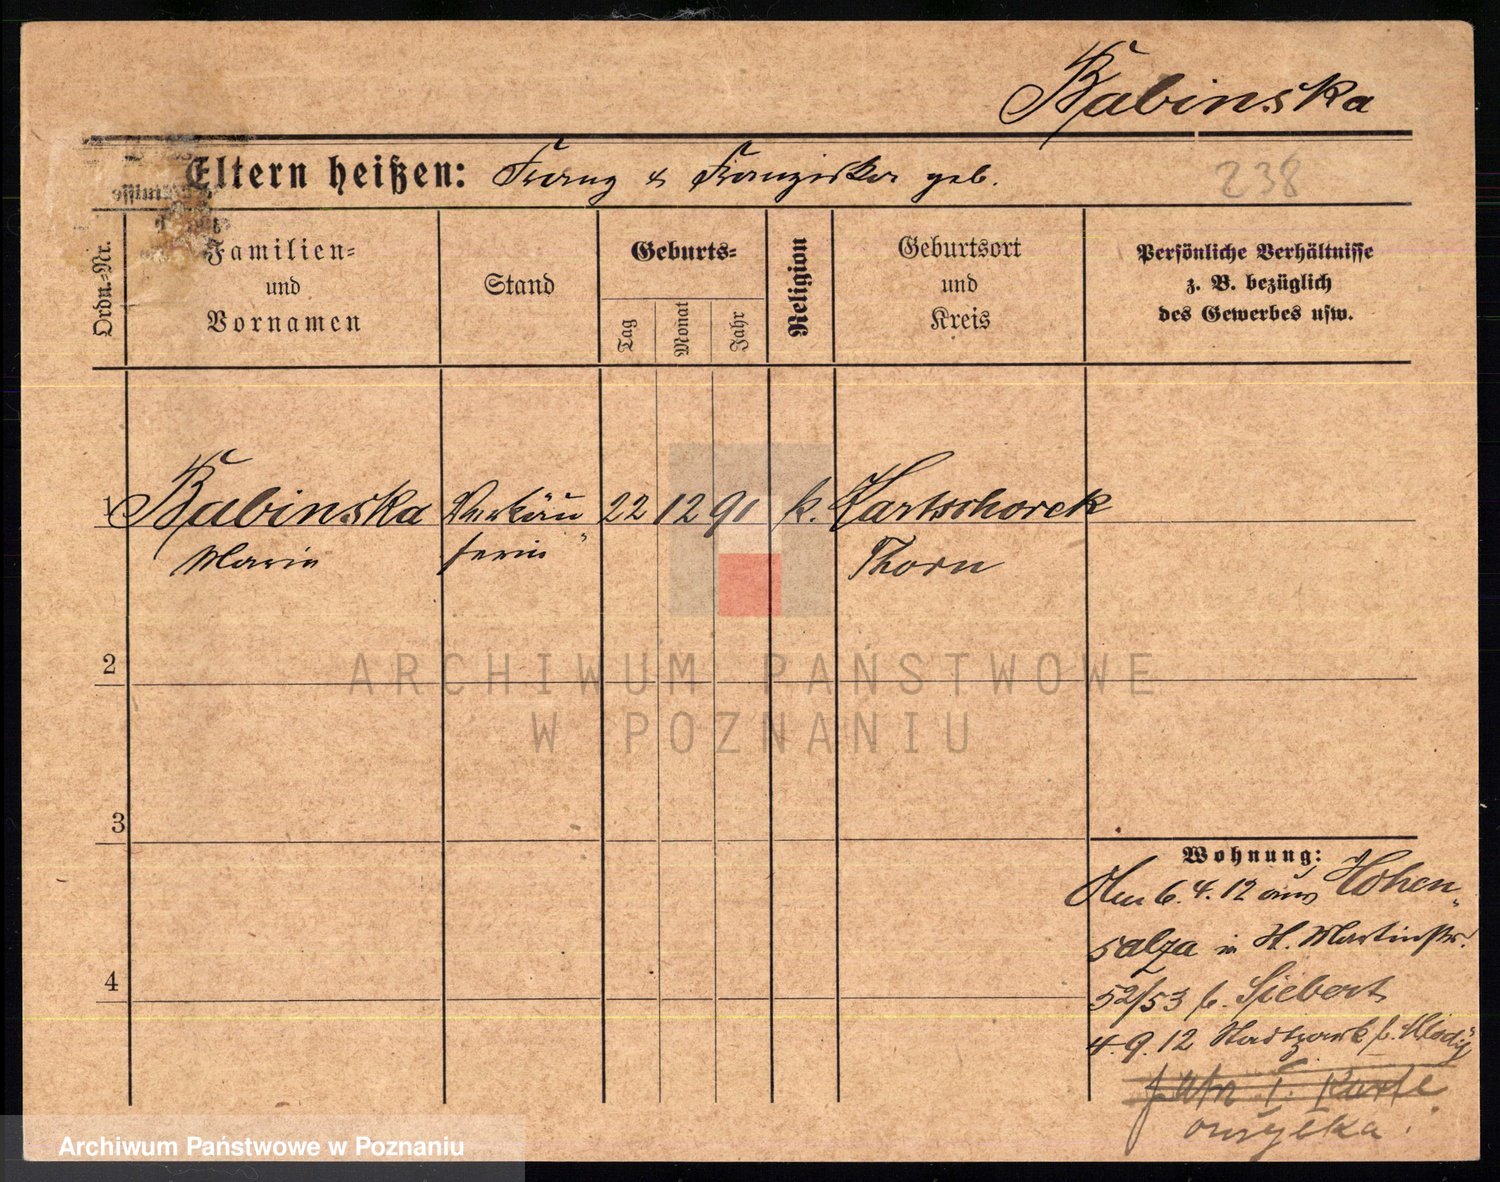 Babinska
Eltern heißen: Franz & Franziska geb.
238
Ordn.-Nr.
Familien-
und
Vornamen
Stand
Geburts-
Tag
Monat
Jahr
Religion
Geburtsort
und
Kreis
Persönliche Verhältnisse
z. B. bezüglich
des Gewerbes usw.
1 Babinska Verkäu 22 12 91 k. Kartschorek
Marie ferin Thorn
2
3
4
Wohnung:
6.4.12 aus Hohen
salza in St. Martinstr.
52/53 b. Siebert
4.9.12 b.
Karte
omyłka.
ARCHIWUM PAŃSTWOWE
W POZNANIU
Archiwum Państwowe w Poznaniu